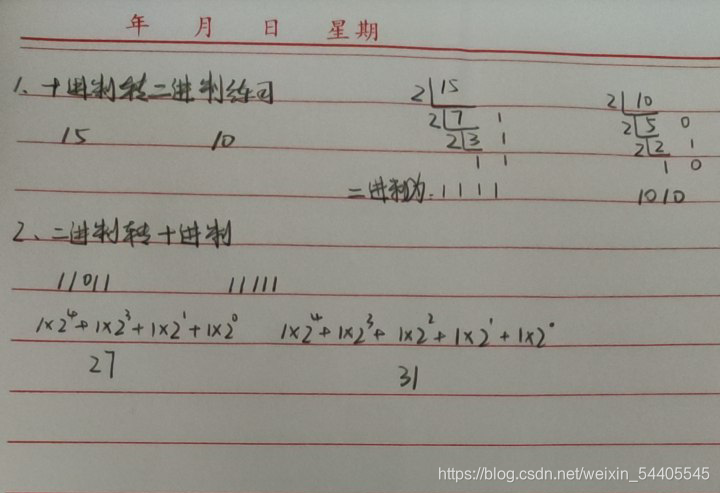 年 月 日 星期
1、十进制转二进制练习
15 10
2 15
2 7 1
2 3 1
1 1
二进制为:1111
2 10
2 5 0
2 2 1
1 0
1010
2、二进制转十进制
11011 11111
1×2⁴+1×2³+1×2¹+1×2⁰ 1×2⁴+1×2³+1×2²+1×2¹+1×2⁰
27 31
https://blog.csdn.net/weixin_54405545